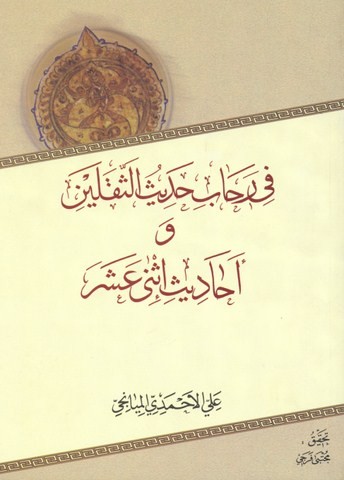 في رحاب حديث الثقلين
و
أحاديث اثنى عشر
علي الأحمدي الميانجي
تحقيق :
مجتبى فرجي